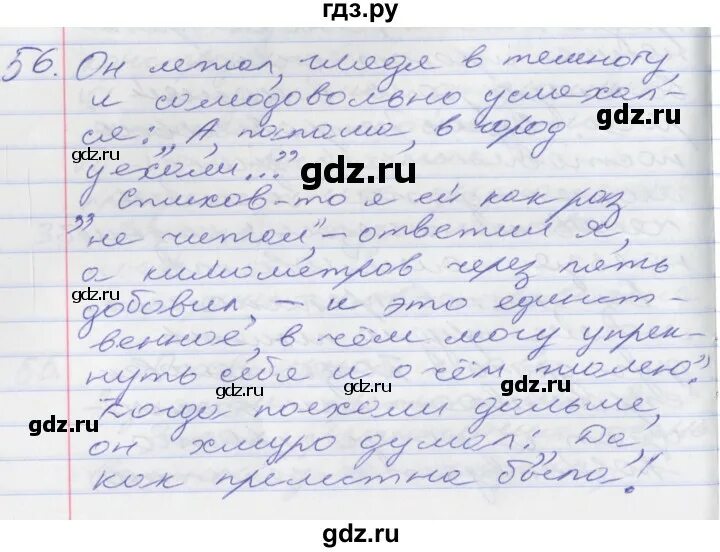 гдз.ру
56. Он летал, глядя в темноту,
и самодовольно усмехал-
ся: „А, папаша, в город
уехали...”
gdz.ru
gdz.ru
gdz.ru
gdz.ru
Стихов-то я ей как раз
не читал,” – ответил я,
а километров через пять
gdz.ru
добавил, – и это единст-
венное, в чём могу упрек-
нуть себя и о чём жалею.”
gdz.ru
gdz.ru
gdz.ru
Когда поехали дальше,
gdz.ru
он хмуро думал: „Да,
как прелестна была!”
gdz.ru